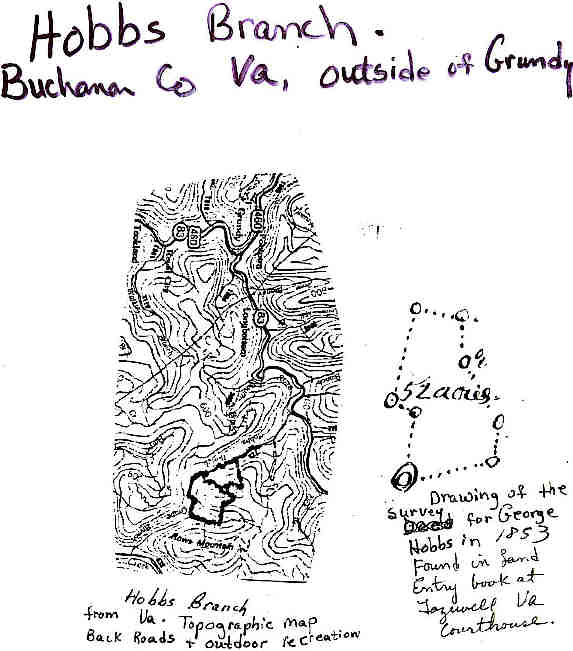 Hobbs Branch.
Buchanan Co Va, outside of Grundy
83
460
460
Grundy
83
Longbottom
Rows Mountain
52 acres.
Hobbs Branch
from Va. Topographic map
Back Roads + outdoor recreation
Drawing of the
survey for George
Hobbs in 1853
Found in Land
Entry book at
Tazewell Va
Courthouse.